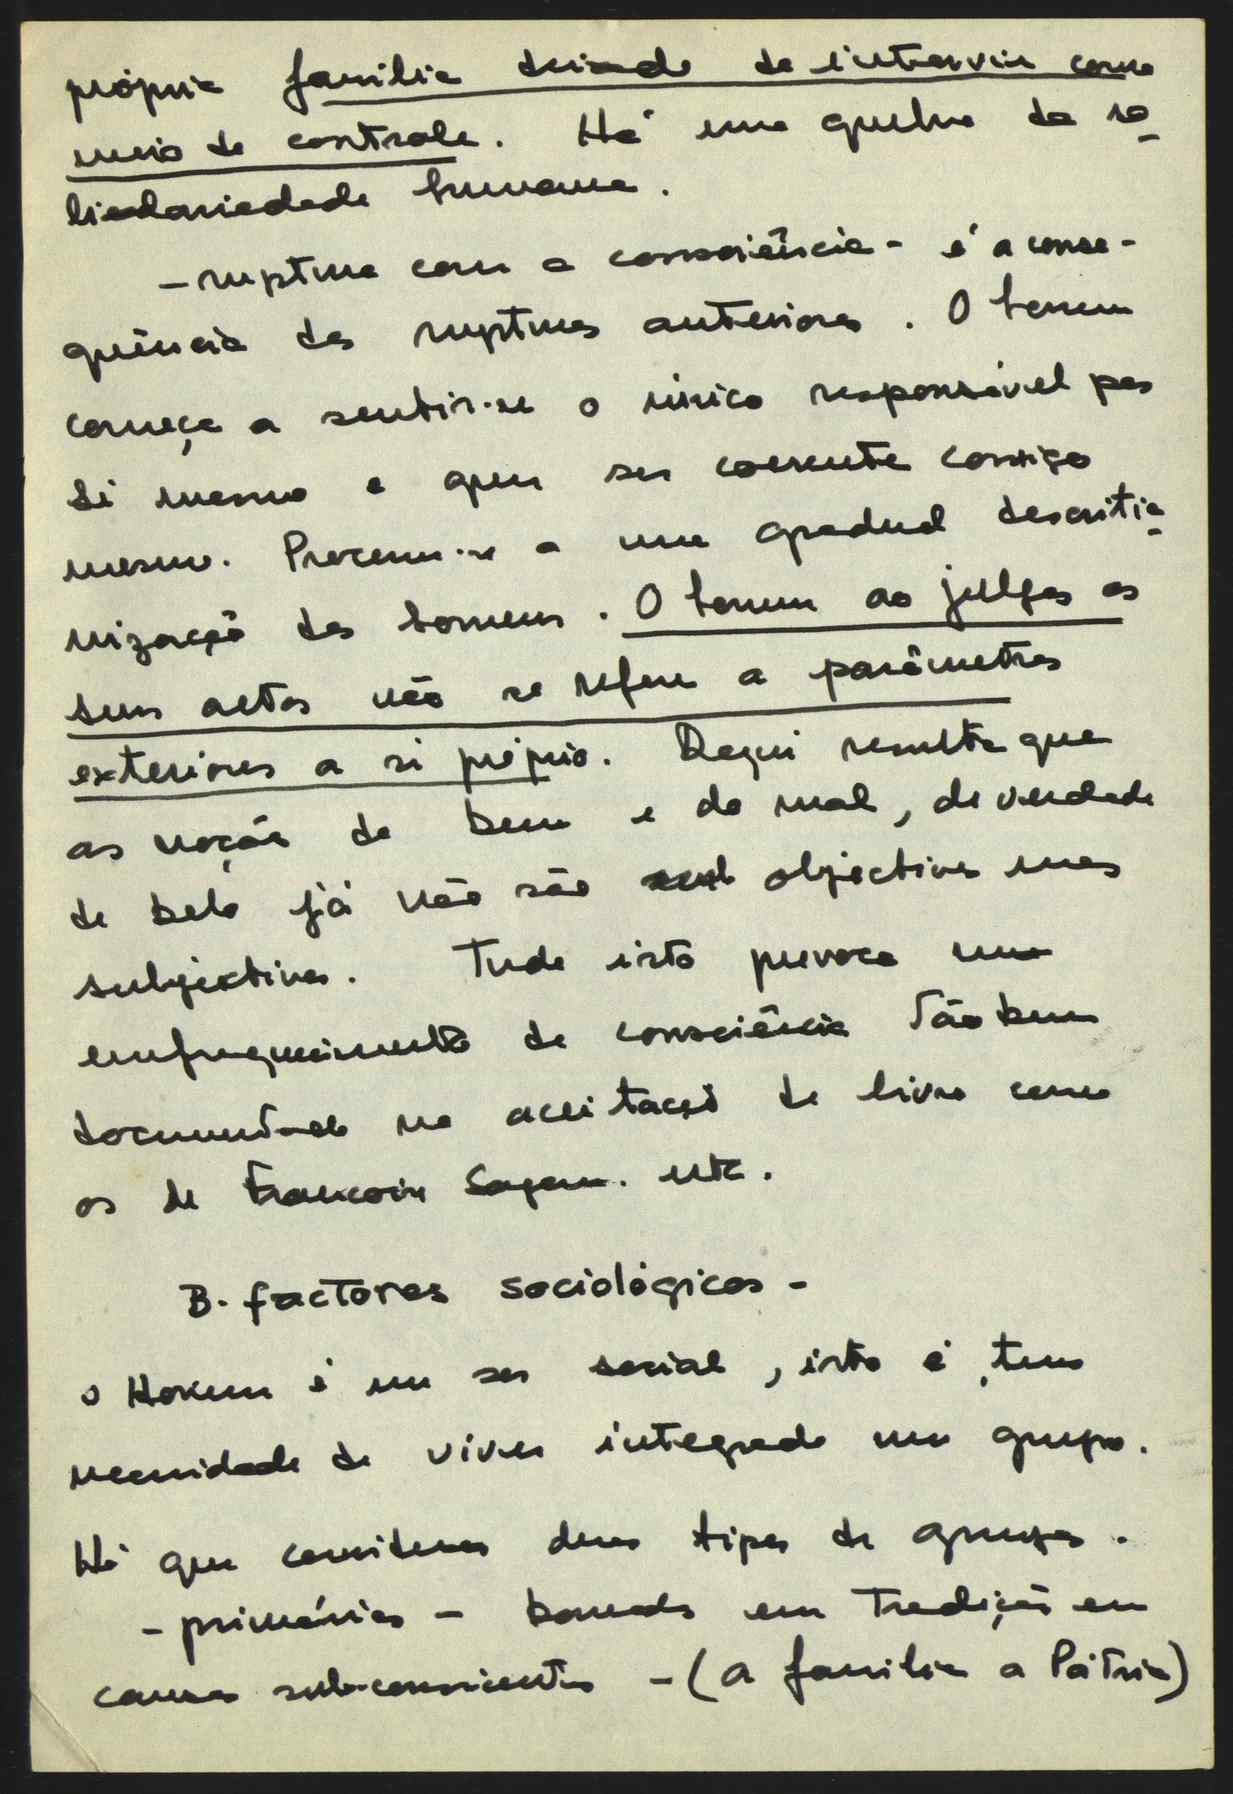 própria família deixado de intervir como
meio de controle. Há uma quebra da so
liedariedade humana.
- ruptura com a consciência - é a conse-
quência das rupturas anteriores. O homem
começa a sentir-se o único responsável por
si mesmo e quer ser coerente consigo
mesmo. Processou-se a uma gradual descristia
nização dos homens. O homem ao julgar os
seus actos não se refere a parâmetros
exteriores a si próprio. Daqui resulta que
as noções de bem e do mal, de verdade
de belo já não são objectivas mas
subjectivas. Tudo isto provoca um
enfraquecimento da consciência tão bem
documentado na aceitação de livro como
os de Francoise Sagan. etc.
B. factores sociológicos -
o Homem é um ser social, isto é, tem
necessidade de viver integrado num grupo.
Há que considerar dois tipos de grupos.
- primários - baseados em Tradição em
causas sub-conscientes - (a família a Pátria)